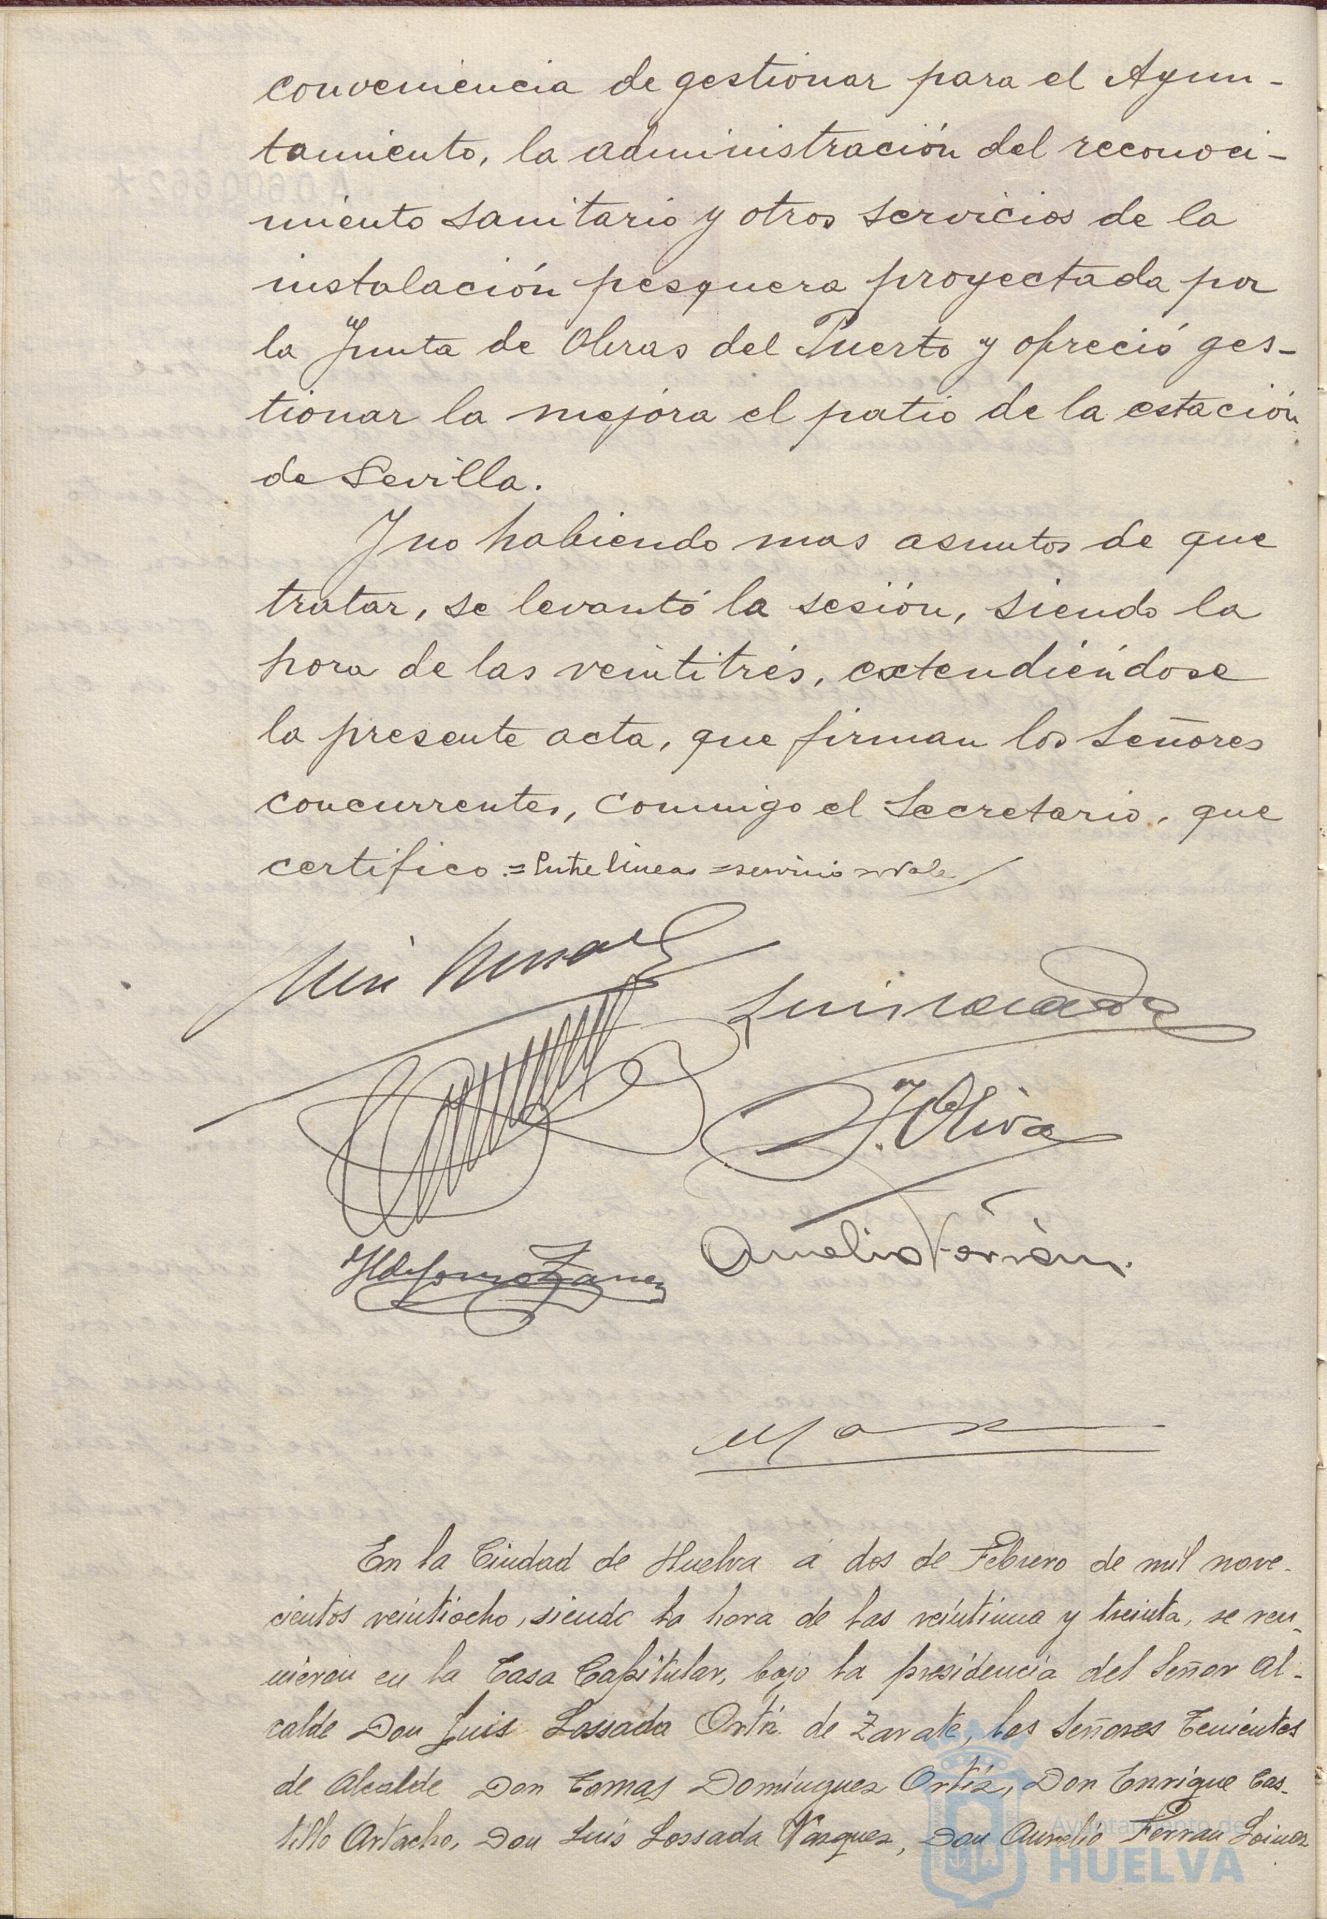 conveniencia de gestionar para el Ayun-
tamiento, la administración del reconoci-
miento sanitario y otros servicios de la
instalación pesquera proyectada por
la Junta de Obras del Puerto y ofreció ges-
tionar la mejora el patio de la estación
de Sevilla.
Y no habiendo mas asuntos de que
tratar, se levantó la sesión, siendo la
hora de las veintitrés, extendiéndose
la presente acta, que firman los Señores
concurrentes, conmigo el Secretario, que
certifico.=Entre lineas=servicio=Vale
Luis Losada
J. Oliva
Aurelio Ferrán.
Ildefonso Zanez
En la Ciudad de Huelva a dos de Febrero de mil nove-
cientos veintiocho, siendo la hora de las veintiuna y treinta, se reu-
nieron en la Casa Capitular, bajo la presidencia del Señor Al-
calde Don Luis Lossada Ortíz de Zarate, los Señores Tenientes
de Alcalde Don Tomas Domínguez Ortíz, Don Enrique Cas-
tillo Artacho, Don Luís Lossada Vazquez, Don Aurelio Ferran
Ayuntamiento de
HUELVA